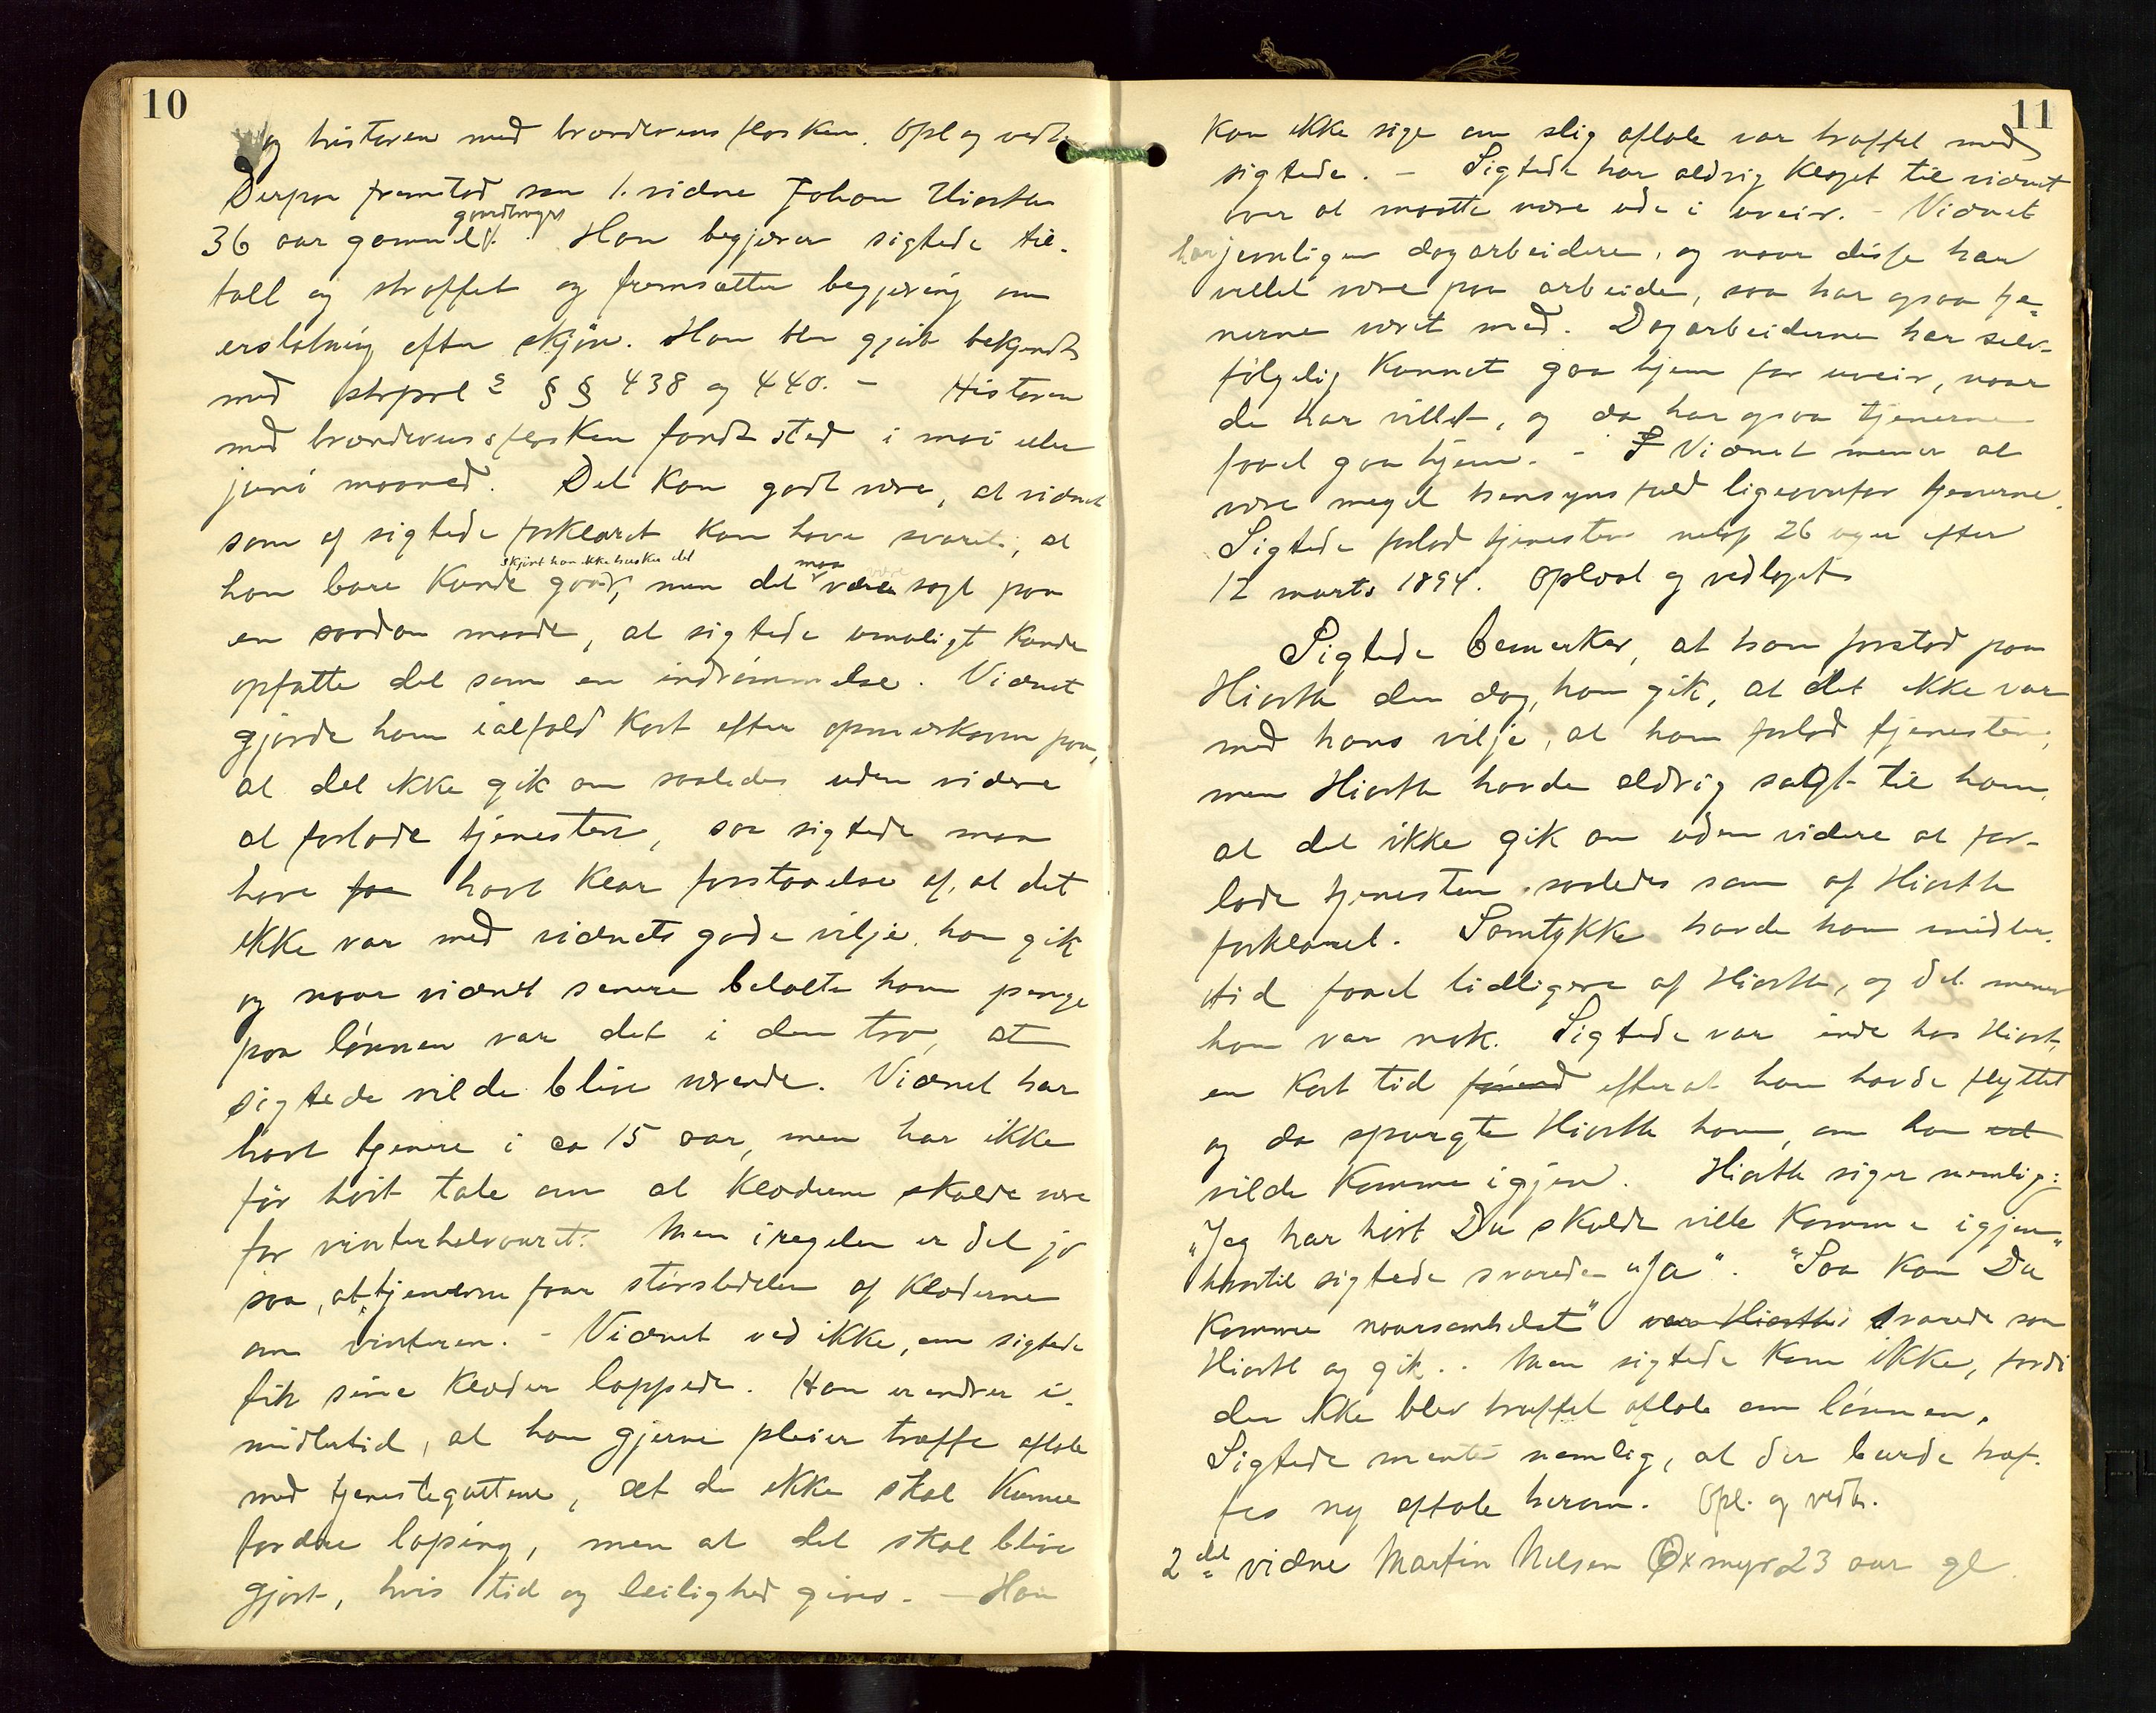 10
og historien med brændevinsflasken. Opl og vedt.
Derpaa fremstod som 1. vidne Johan Hiorth
gaardbruger
36 aar gammel. Han begjærer sigtede til-
talt og straffet og fremsætter begjæring om
erstatning efter skjøn. Han blev gjort bekjendt
med strprl s §§ 438 og 440. - Historien
med brændevinsflasken fandt sted i mai eller
juni maaned. Det kan godt være, at vidnet
som af sigtede forklaret kan have svaret, at
skjønt han ikke husker det
maa
han bare kunde gaa, men det være sagt paa
en saadan maade, at sigtede umuligt kunde
opfatte det som en indrømmelse. Vidnet
gjorde ham ialfald kort efter opmærksom paa,
at det ikke gik an saaledes uden videre
at forlade tjenesten, saa sigtede maa
have faa havt klar forstaaelse af, at det
ikke var med vidnets gode vilje, han gik
og naar vidnet senere betalte ham penge
paa lønnen var det i den tro, at
sigtede vilde blive værende. Vidnet har
havt tjenere i ca 15 aar, men har ikke
før hørt tale om at klæderne skulde være
for vinterhalvaaret. Men i regelen er det jo
saa, at tjenerne faar størstedelen af klæderne
om vinteren. - Vidnet ved ikke, om sigtede
fik sine klæder lappede. Han erindrer i-
midlertid, at han gjerne pleier træffe aftale
med tjenestegutterne, at de ikke skal kunne
fordre lapning, men at det skal blive
gjort, hvis tid og leilighed gives. - Han
11
kan ikke sige om slig aftale var truffet med
sigtede. - Sigtede har aldrig klaget til vidnet
over at maatte være ude i uveir. - Vidnet
har jevnligen dagarbeidere, og naar disse har
villet være paa arbeide, saa har ogsaa tje-
nerne været med. Dagarbeiderne har selv-
følgelig kunnet gaa hjem for uveir, naar
de har villet, og da har ogsaa tjenerne
faaet gaa hjem. - S Vidnet mener at
være meget hensynsfuld ligeoverfor tjenerne.
Sigtede forlod tjenesten netop 26 uger efter
12 marts 1894. Oplæst og vedtaget
Sigtede bemærker, at han forstod paa
Hiorth den dag, han gik, at det ikke var
med hans vilje, at han forlod tjenesten,
men Hiorth havde aldrig sagt til ham,
at det ikke gik an uden videre at for-
lade tjenesten saaledes som af Hiorth
forklaret. Samtykke havde han imidler-
tid faaet tidligere af Hiorth, og det mener
han var nok. Sigtede var inde hos Hiorth
en kort tid førend efterat han havde flyttet
og da spurgte Hiorth ham, om han vil
vilde komme igjen. Hiorth siger nemlig:
"Jeg har hørt Du skulde ville komme igjen"
hvortil sigtede svarede "Ja". "Saa kan Du
komme naarsomhelst" var Hiorths svarede saa
Hiorth og gik. . Men sigtede kom ikke, fordi
der ikke blev truffet aftale om lønnen.
Sigtede mente nemlig, at der burde træf-
fes ny aftale herom. Opl. og vedt.
2det vidne Martin Nilsen Oxmyr 23 aar gl.